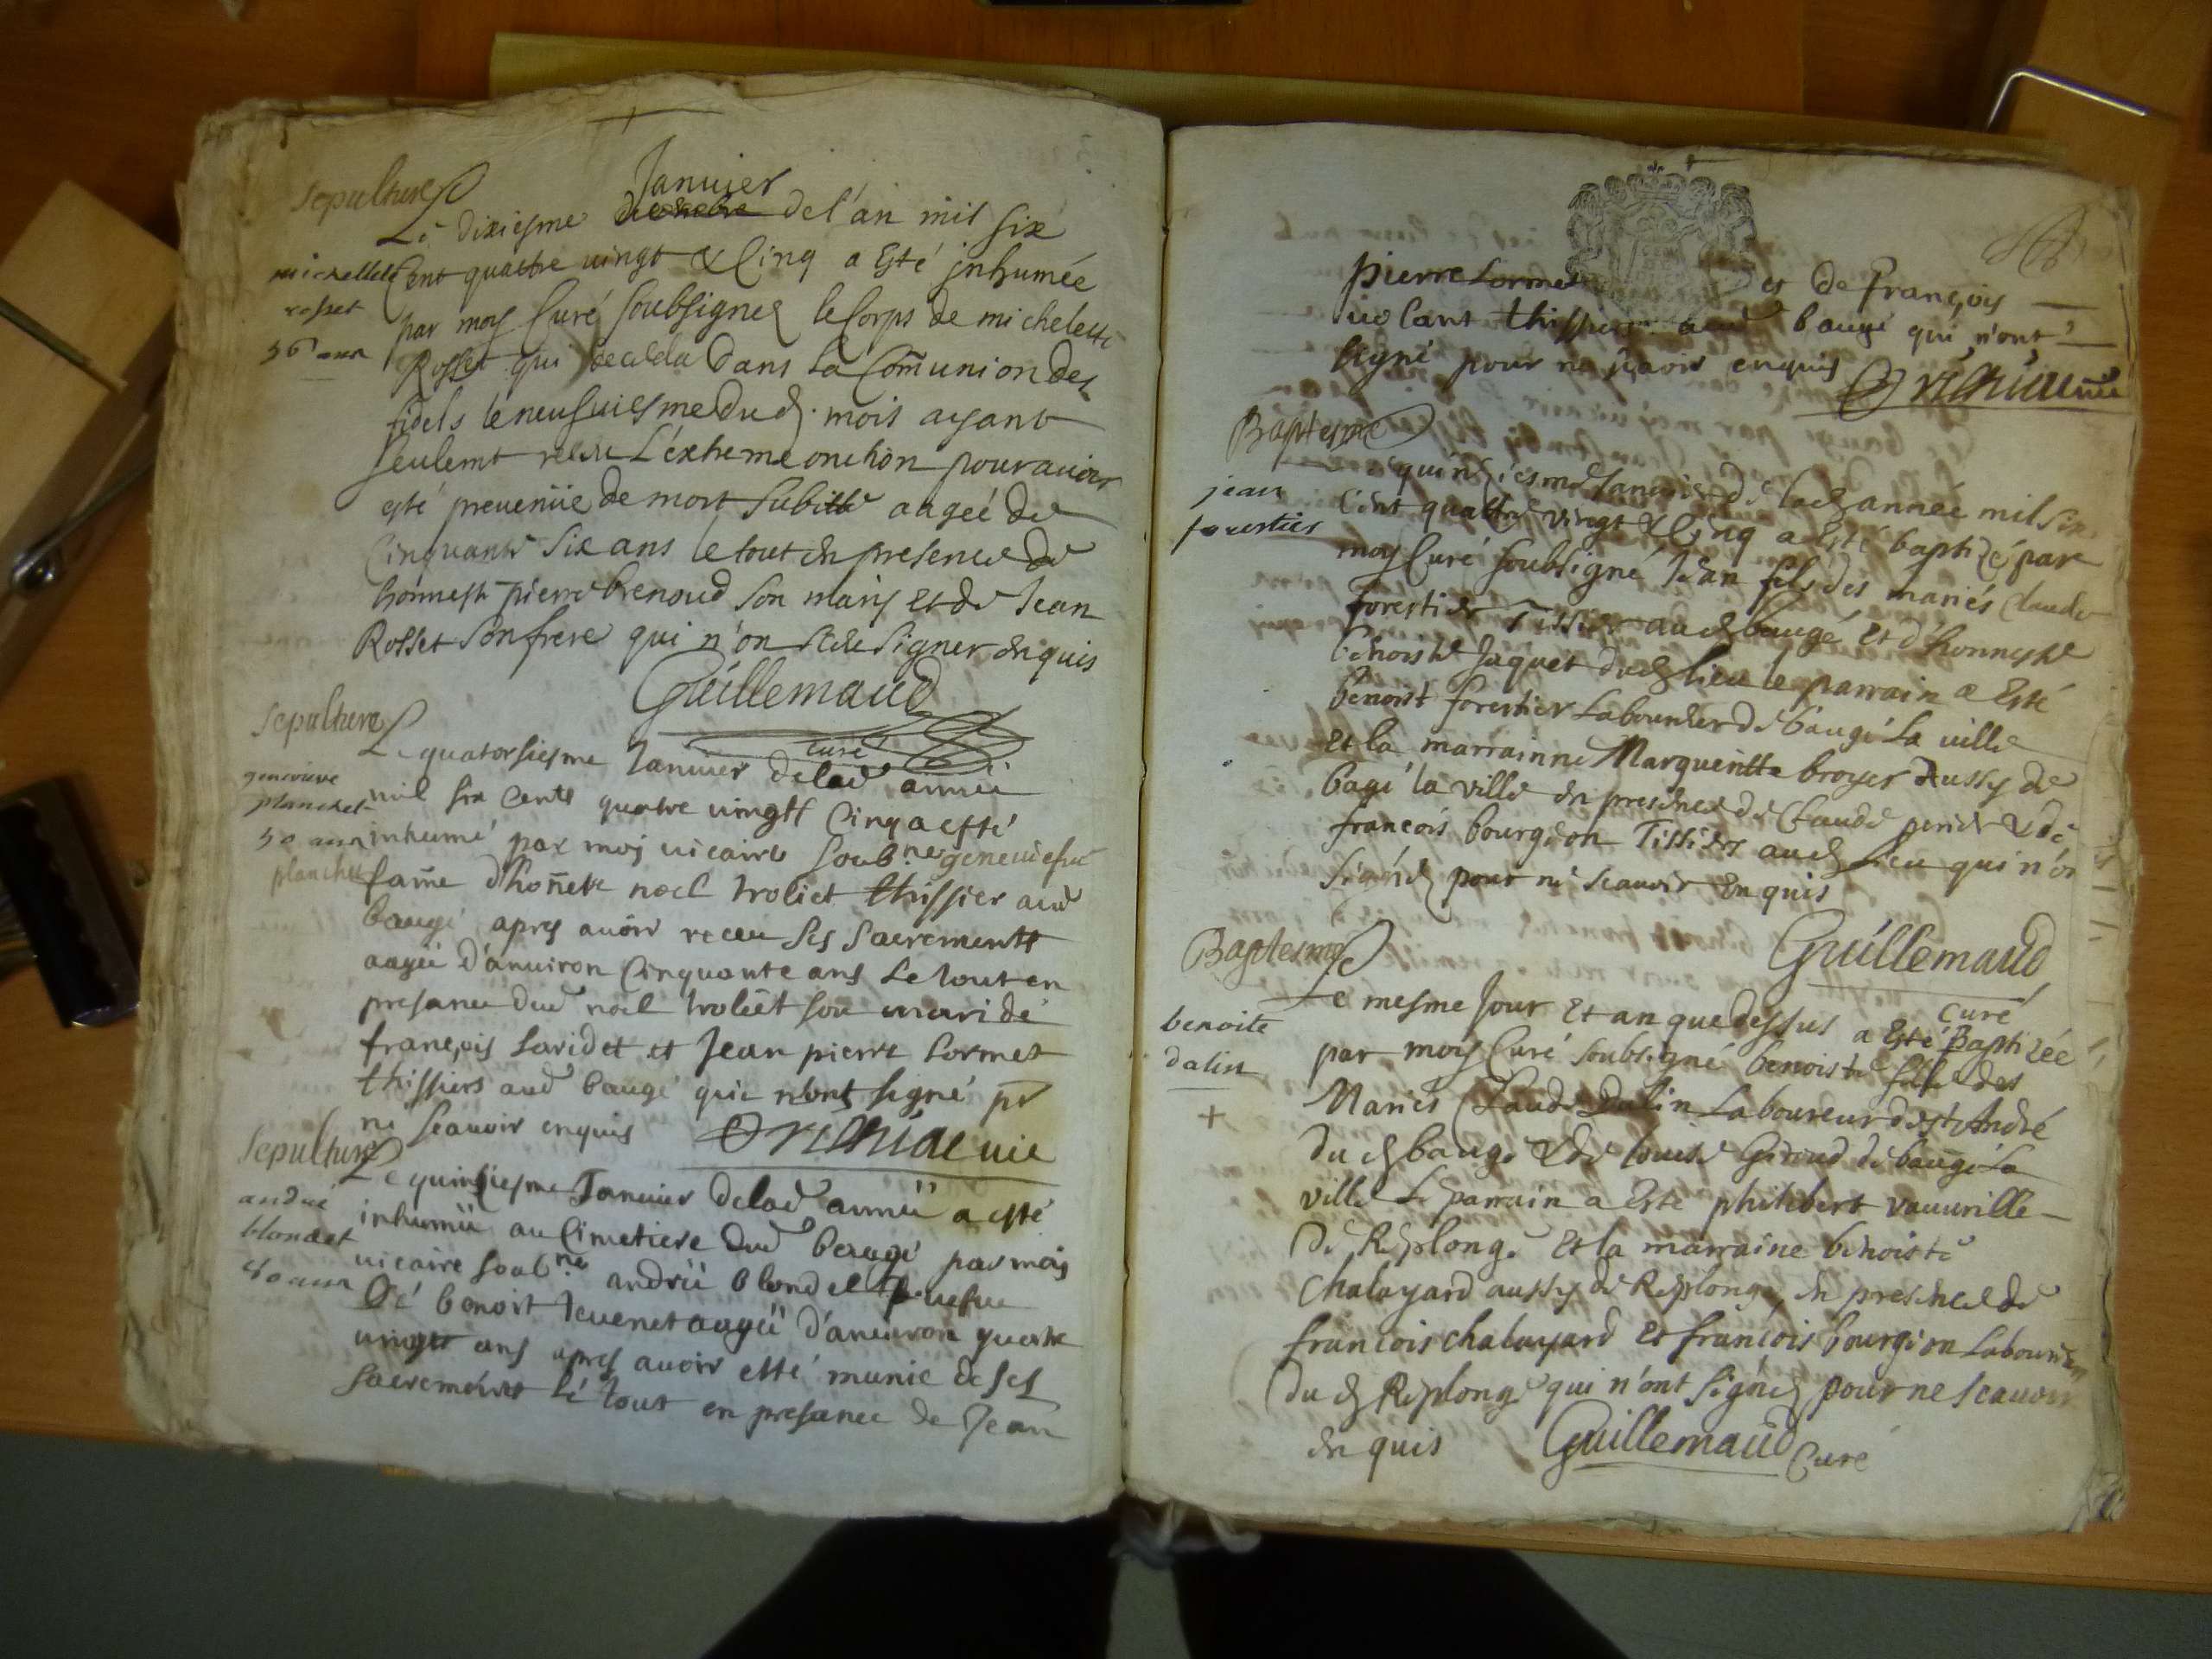 Sepulture
Janvier
Le dixiesme decembre de l'an mil six
michellete
rosset
56 ans
Cent quattre vingt & Cinq a Esté jnhumée
par moy Curé soubsignez le Corps de michelette
Rosset qui deceda Dans La Communion des
fidels le neufuiesme dud. mois ayant
seulemt receu L'extreme onction pour auoir
esté preuenüe de mort subitte aageé de
Cinquante Six ans le tout En presence de
honneste pierre brenoud son mary et de Jean
Rosset son frere qui n'on sceu signer Enquis
Guillemaud
curé
Sepulture
Le quatorsiesme Januier de lad année
geneuieve
planchet
50 ans
planchet
mil six Cents quatre uingtt Cinq a esté
inhumé par moj uicaire soub.né geneuiefue
fame d'honete noel troliet thissier aud
baugé apres auoir receu ses sacrementt
aagée d'anuiron Cinquante ans Le tout en
presance dud noel troliet son mari dé
françois Laridet et Jean pierre Cormet
thissiers aud baugé qui n'ont signé pr
né scauoir enquis uic
Sepulture
Le quinsiesme Januier de lad année a esté
andrié
blondet
80 ans
inhumée au Cimetiere dud beaugé par moy
uicaire soub.né andrië blondet uefue
dé benoit Jeuenet aagée d'anuiron quatre
uingt ans apres auoir esté munie de ses
sacrements lé tout en presance de Jean
pierre Cormet et de François
uiolant thissiers aud baugé qui n'ont
signé pour ne scauoir enquis
Baptesme
jean
forestier
quinziesme Januier de lad année mil six
Cent quattre vingt & Cinq a Esté baptizé par
moy Curé soubsigné Jean fils des mariés Claude
forestier Tissier aud baugé et d'honneste
benoiste Jaquet dud lieu le parrain a Esté
benoist forestier Laboureur de baugé La ville
Et la marrainne Margueritte broyer Aussy de
bagé la ville En presence de Claude perier & de
francois bourgeon Tissiers aud Lieu qui n'on
signéz pour ne scauoir Enquis
Guillemaud
curé
Baptesme
Le mesme Jour Et an que dessus a Esté Baptizée
benoite
dalin
par moy Curé soubsigné benoiste fille des
Mariés Claude Dalin Laboureur de St André
dud baugé & de louise Giroud de baugé La
ville Le parrain a Esté philibert vauurille
De Replonge Et la marraine benoiste
Chalayard aussy de Replonge, En presence de
francois chalayard Et francois bourgeon Laboureurs
dud Replonge qui n'ont signéz pour ne scauoir
Enquis Guillemaud Curé